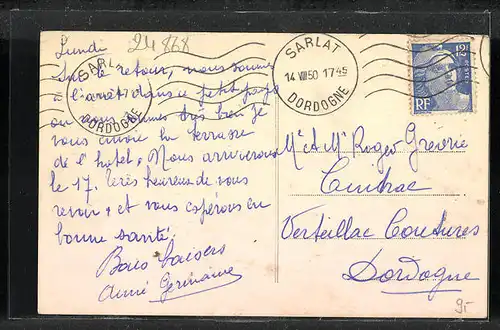 24868
Lundi
Sur le retour, nous sommes
à l'arrêt dans ce petit pays
où nous sommes très bien je
vous envoie la terrasse
de l'hotel. Nous arriverons
le 17. très heureux de vous
revoir, et nous espérons en
bonne santé.
Bons baisers
Aimé Germaine
SARLAT
17
DORDOGNE
SARLAT
14 VIII 50 1745
DORDOGNE
12F
RF
Mr et Me Roger
Verteillac Coutures
Dordogne
9.-